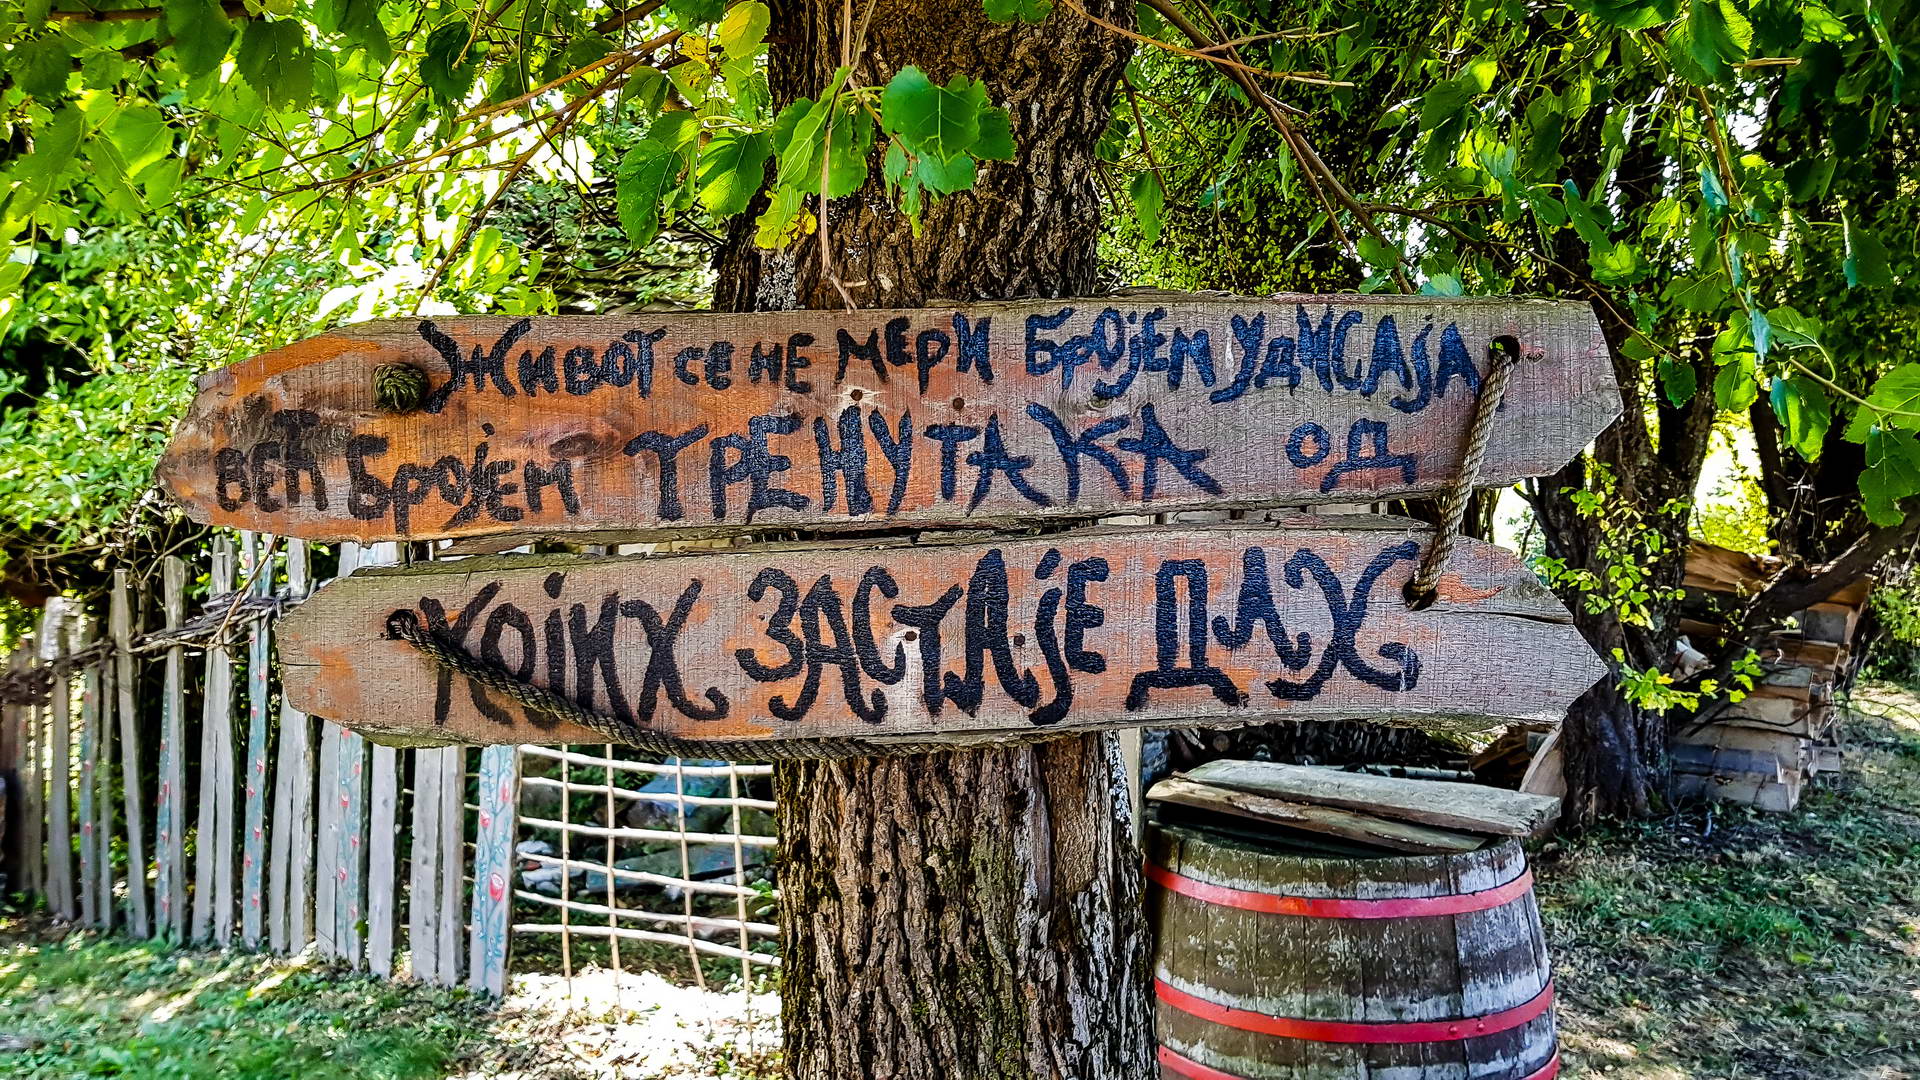 Живот се не мери бројем удисаја
већ бројем тренутака од
којих застаје дах